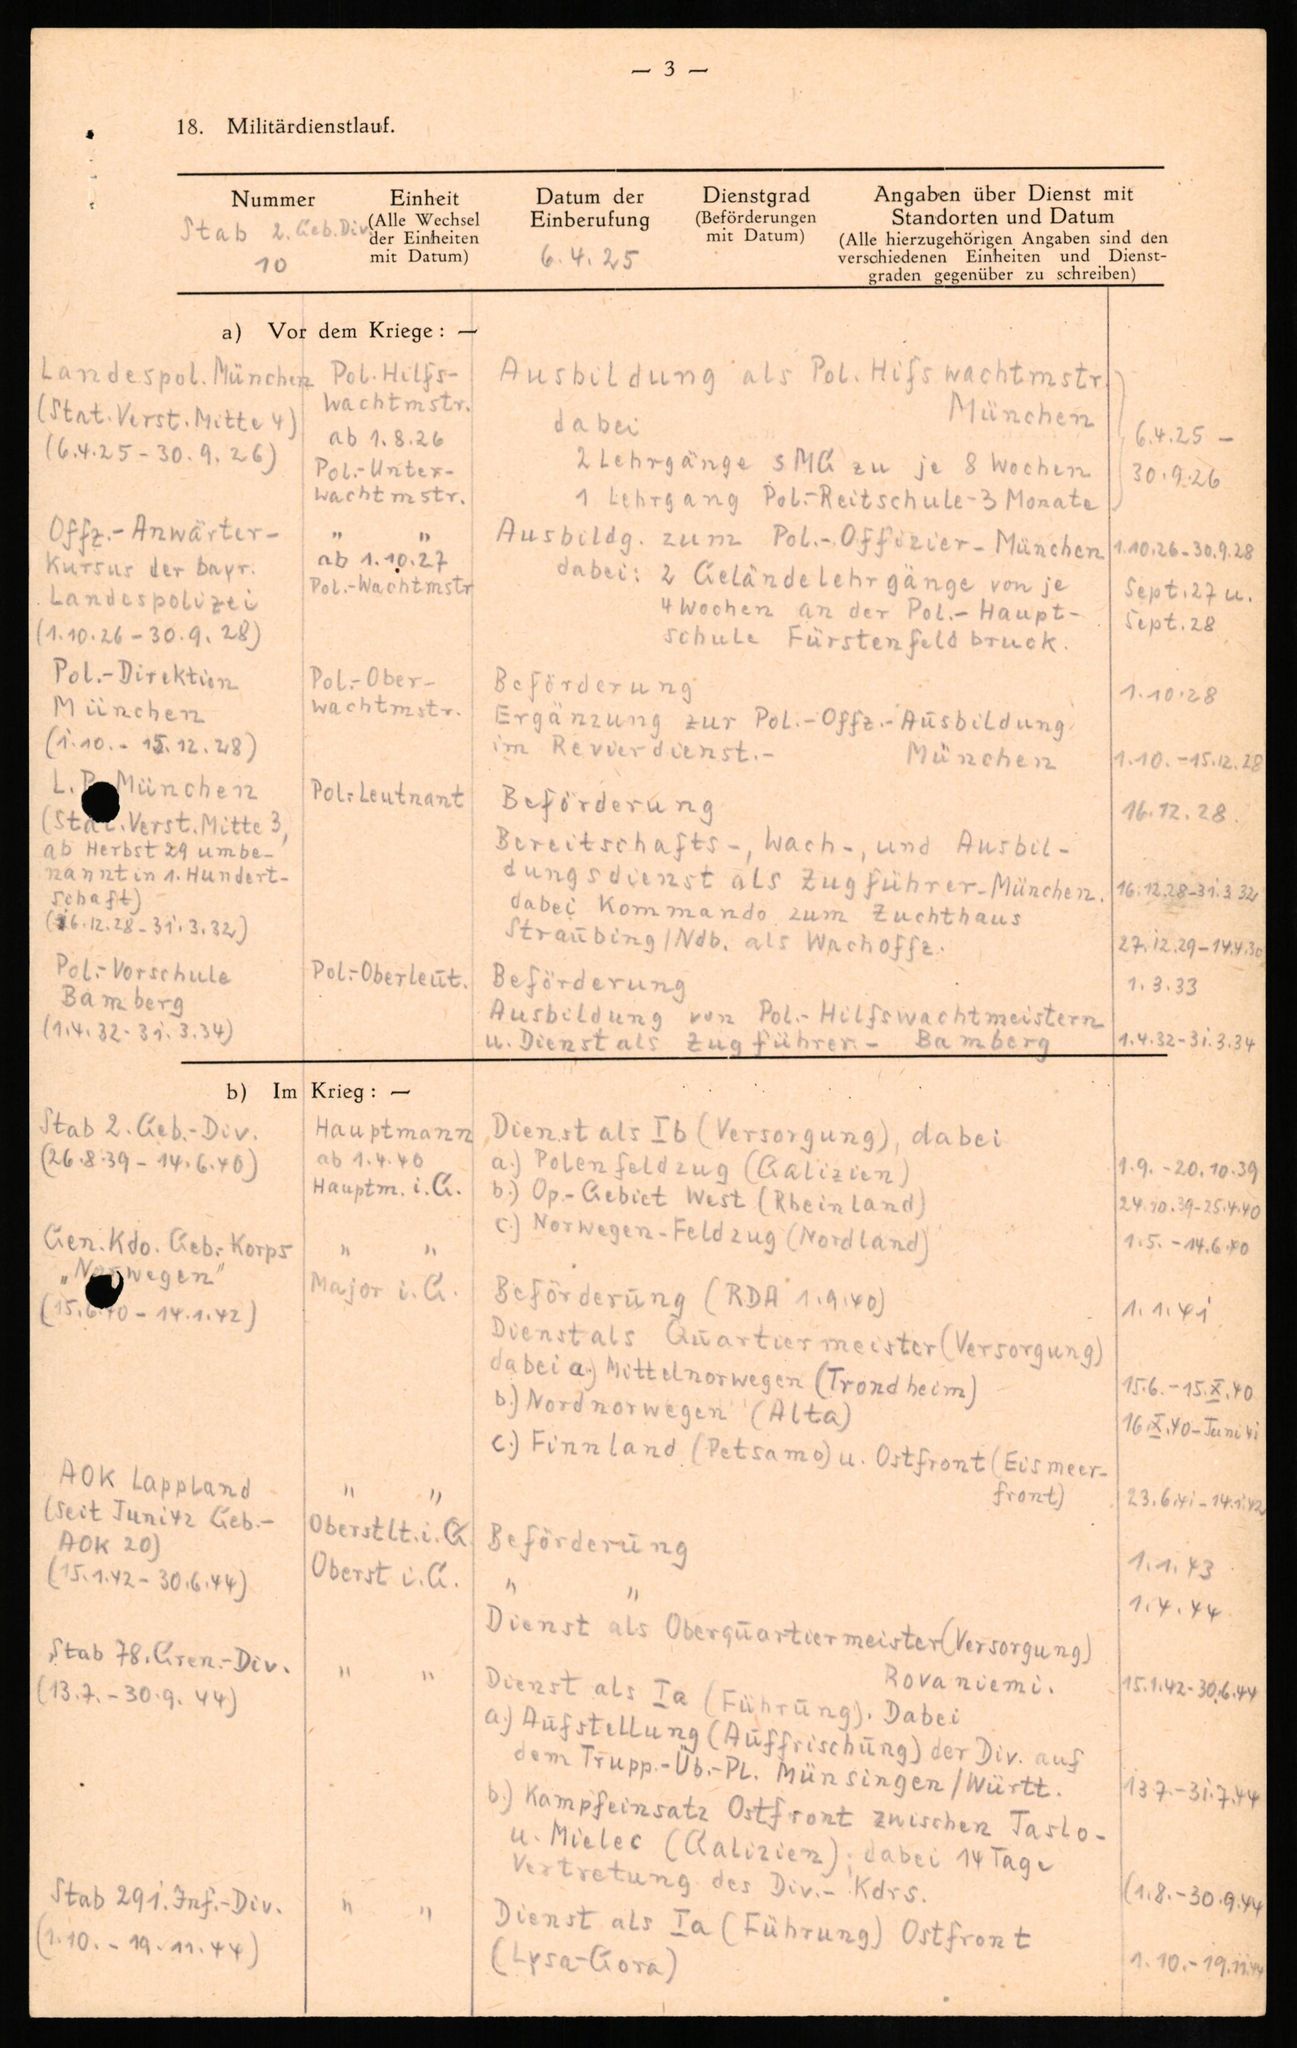 — 3 —
18. Militärdienstlauf.
Nummer
Stab 2. Geb. Div.
10
Einheit
(Alle Wechsel
der Einheiten
mit Datum)
Datum der
Einberufung
6.4.25
Dienstgrad
(Beförderungen
mit Datum)
Angaben über Dienst mit
Standorten und Datum
(Alle hierzugehörigen Angaben sind den
verschiedenen Einheiten und Dienst-
graden gegenüber zu schreiben)
a) Vor dem Kriege: —
Landespol. München
(Stat. Verst. Mitte 4)
(6.4.25 - 30.9.26)
Pol. Hilfs-
wachtmstr.
ab 1.8.26
Pol.-Unter-
wachtmstr.
Ausbildung als Pol. Hifswachtmstr.
München
dabei
2 Lehrgänge sMG zu je 8 Wochen
1 Lehrgang Pol.-Reitschule - 3 Monate
6.4.25 -
30.9.26
Offz.-Anwärter-
Kursus der bayr.
Landespolizei
(1.10.26 - 30.9.28)
" "
ab 1.10.27
Pol.-Wachtmstr
Ausbildg. zum Pol.-Offizier - München
dabei: 2 Geländelehrgänge von je
4 Wochen an der Pol.-Haupt-
schule Fürstenfeldbruck.
1.10.26 - 30.9.28
Sept. 27 u.
Sept. 28
Pol.-Direktion
München
(1.10. - 15.12.28)
Pol.-Ober-
wachtmstr.
Beförderung
Ergänzung zur Pol.-Offz.-Ausbildung
im Revierdienst. - München
1.10.28
1.10. - 15.12.28
L.P. München
(Stat. Verst. Mitte 3,
ab Herbst 29 umbe-
nannt in 1. Hundert-
schaft)
(16.12.28 - 31.3.32)
Pol.-Leutnant
Beförderung
Bereitschafts-, Wach-, und Ausbil-
dungsdienst als Zugführer - München.
dabei Kommando zum Zuchthaus
Straubing/Ndb. als Wachoffz.
16.12.28.
16.12.28 - 31.3.32
27.12.29 - 14.4.30
Pol.-Vorschule
Bamberg
(1.4.32 - 31.3.34)
Pol.-Oberleut.
Beförderung
Ausbildung von Pol.-Hilfswachtmeistern
u. Dienst als Zugführer. - Bamberg
1.3.33
1.4.32 - 31.3.34
b) Im Krieg: —
Stab 2. Geb.-Div.
(26.8.39 - 14.6.40)
Hauptmann
ab 1.4.40
Hauptm. i. G.
Dienst als Ib (Versorgung), dabei
a.) Polenfeldzug (Galizien)
b.) Op.-Gebiet West (Rheinland)
c.) Norwegen-Feldzug (Nordland)
1.9. - 20.10.39
24.10.39 - 25.4.40
1.5. - 14.6.40
Gen. Kdo. Geb.-Korps
„Norwegen"
(15.6.40 - 14.1.42)
" "
Major i. G.
Beförderung (RDA 1.9.40)
Dienst als Quartiermeister (Versorgung)
dabei a.) Mittelnorwegen (Trondheim)
b.) Nordnorwegen (Alta)
c.) Finnland (Petsamo) u. Ostfront (Eismeer-
front)
1.1.41
15.6. - 15.X.40
16.X.40 - Juni 41
23.6.41 - 14.1.42
AOK Lappland
(seit Juni 42 Geb.-
AOK 20)
(15.1.42 - 30.6.44)
" "
Oberstlt. i. G.
Oberst i. G.
Beförderung
" "
Dienst als Oberquartiermeister (Versorgung)
Rovaniemi.
1.1.43
1.4.44
15.1.42 - 30.6.44
Stab 78. Gren.-Div.
(13.7. - 30.9.44)
" "
Dienst als Ia (Führung). Dabei
a.) Aufstellung (Auffrischung) der Div. auf
dem Trupp.-Üb.-Pl. Münsingen/Württ.
b.) Kampfeinsatz Ostfront zwischen Jaslo-
u. Mielec (Galizien); dabei 14 Tage
Vertretung des Div.-Kdrs.
13.7. - 31.7.44
(1.8. - 30.9.44
Stab 291. Inf.-Div.
(1.10. - 19.11.44)
" "
Dienst als Ia (Führung) Ostfront
(Lysa-Gora)
1.10. - 19.11.44